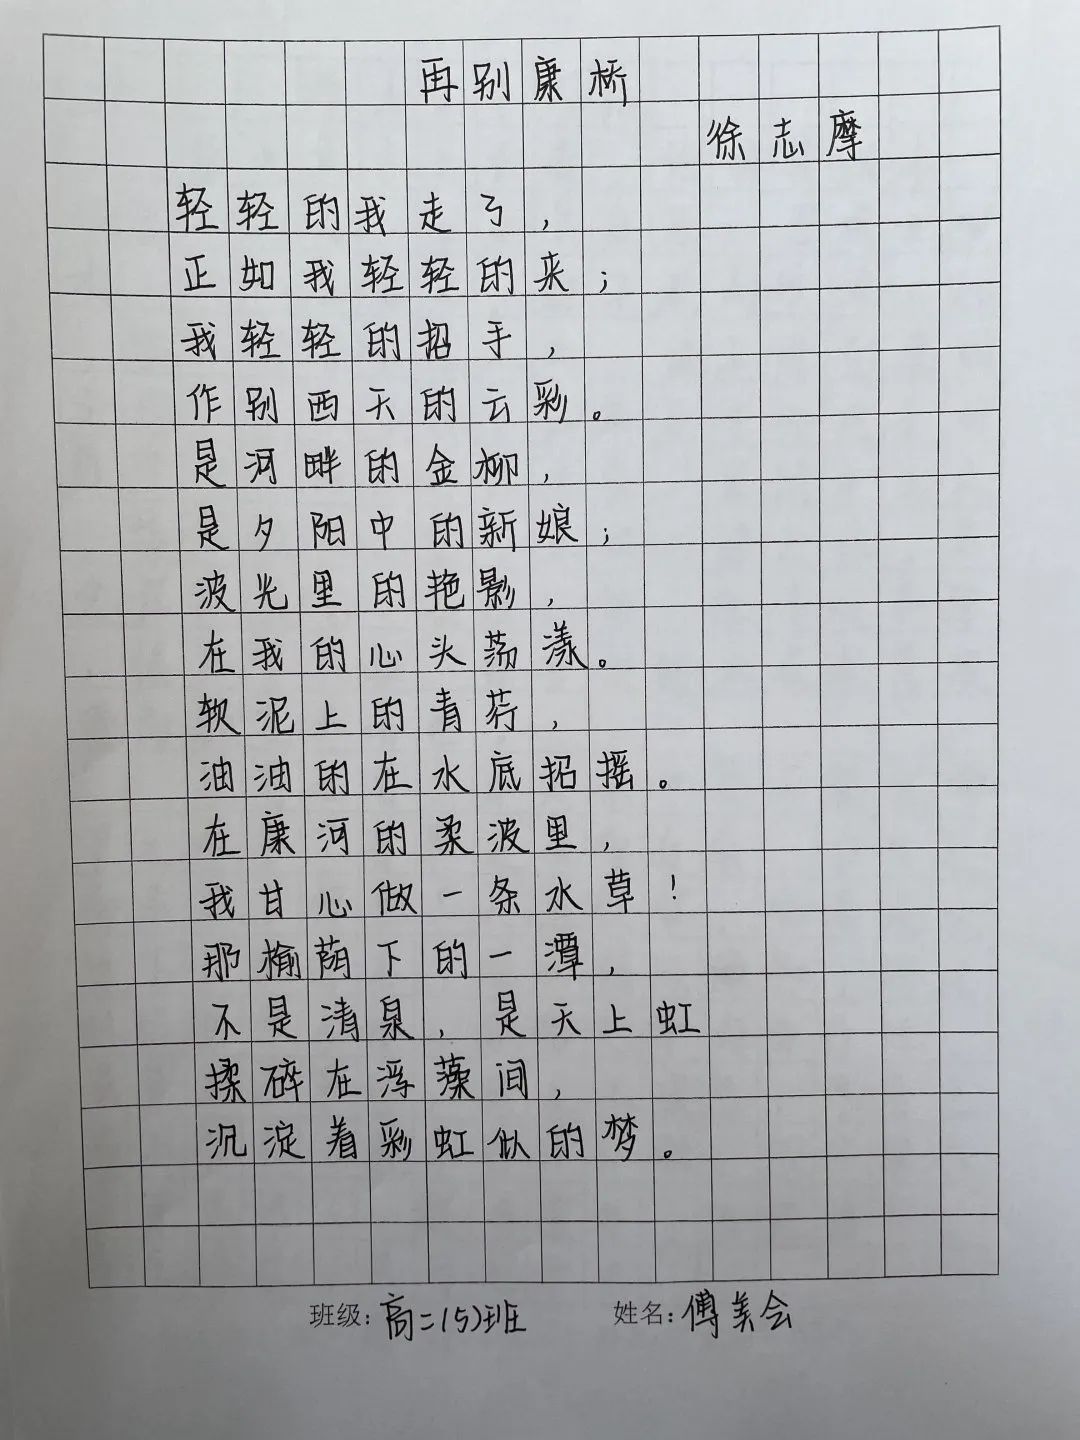 再别康桥
徐志摩
轻轻的我走了，
正如我轻轻的来；
我轻轻的招手，
作别西天的云彩。
是河畔的金柳，
是夕阳中的新娘；
波光里的艳影，
在我的心头荡漾。
软泥上的青荇，
油油的在水底招摇。
在康河的柔波里，
我甘心做一条水草！
那榆荫下的一潭，
不是清泉，是天上虹
揉碎在浮藻间，
沉淀着彩虹似的梦。
班级：高二（5）班 姓名：傅美会